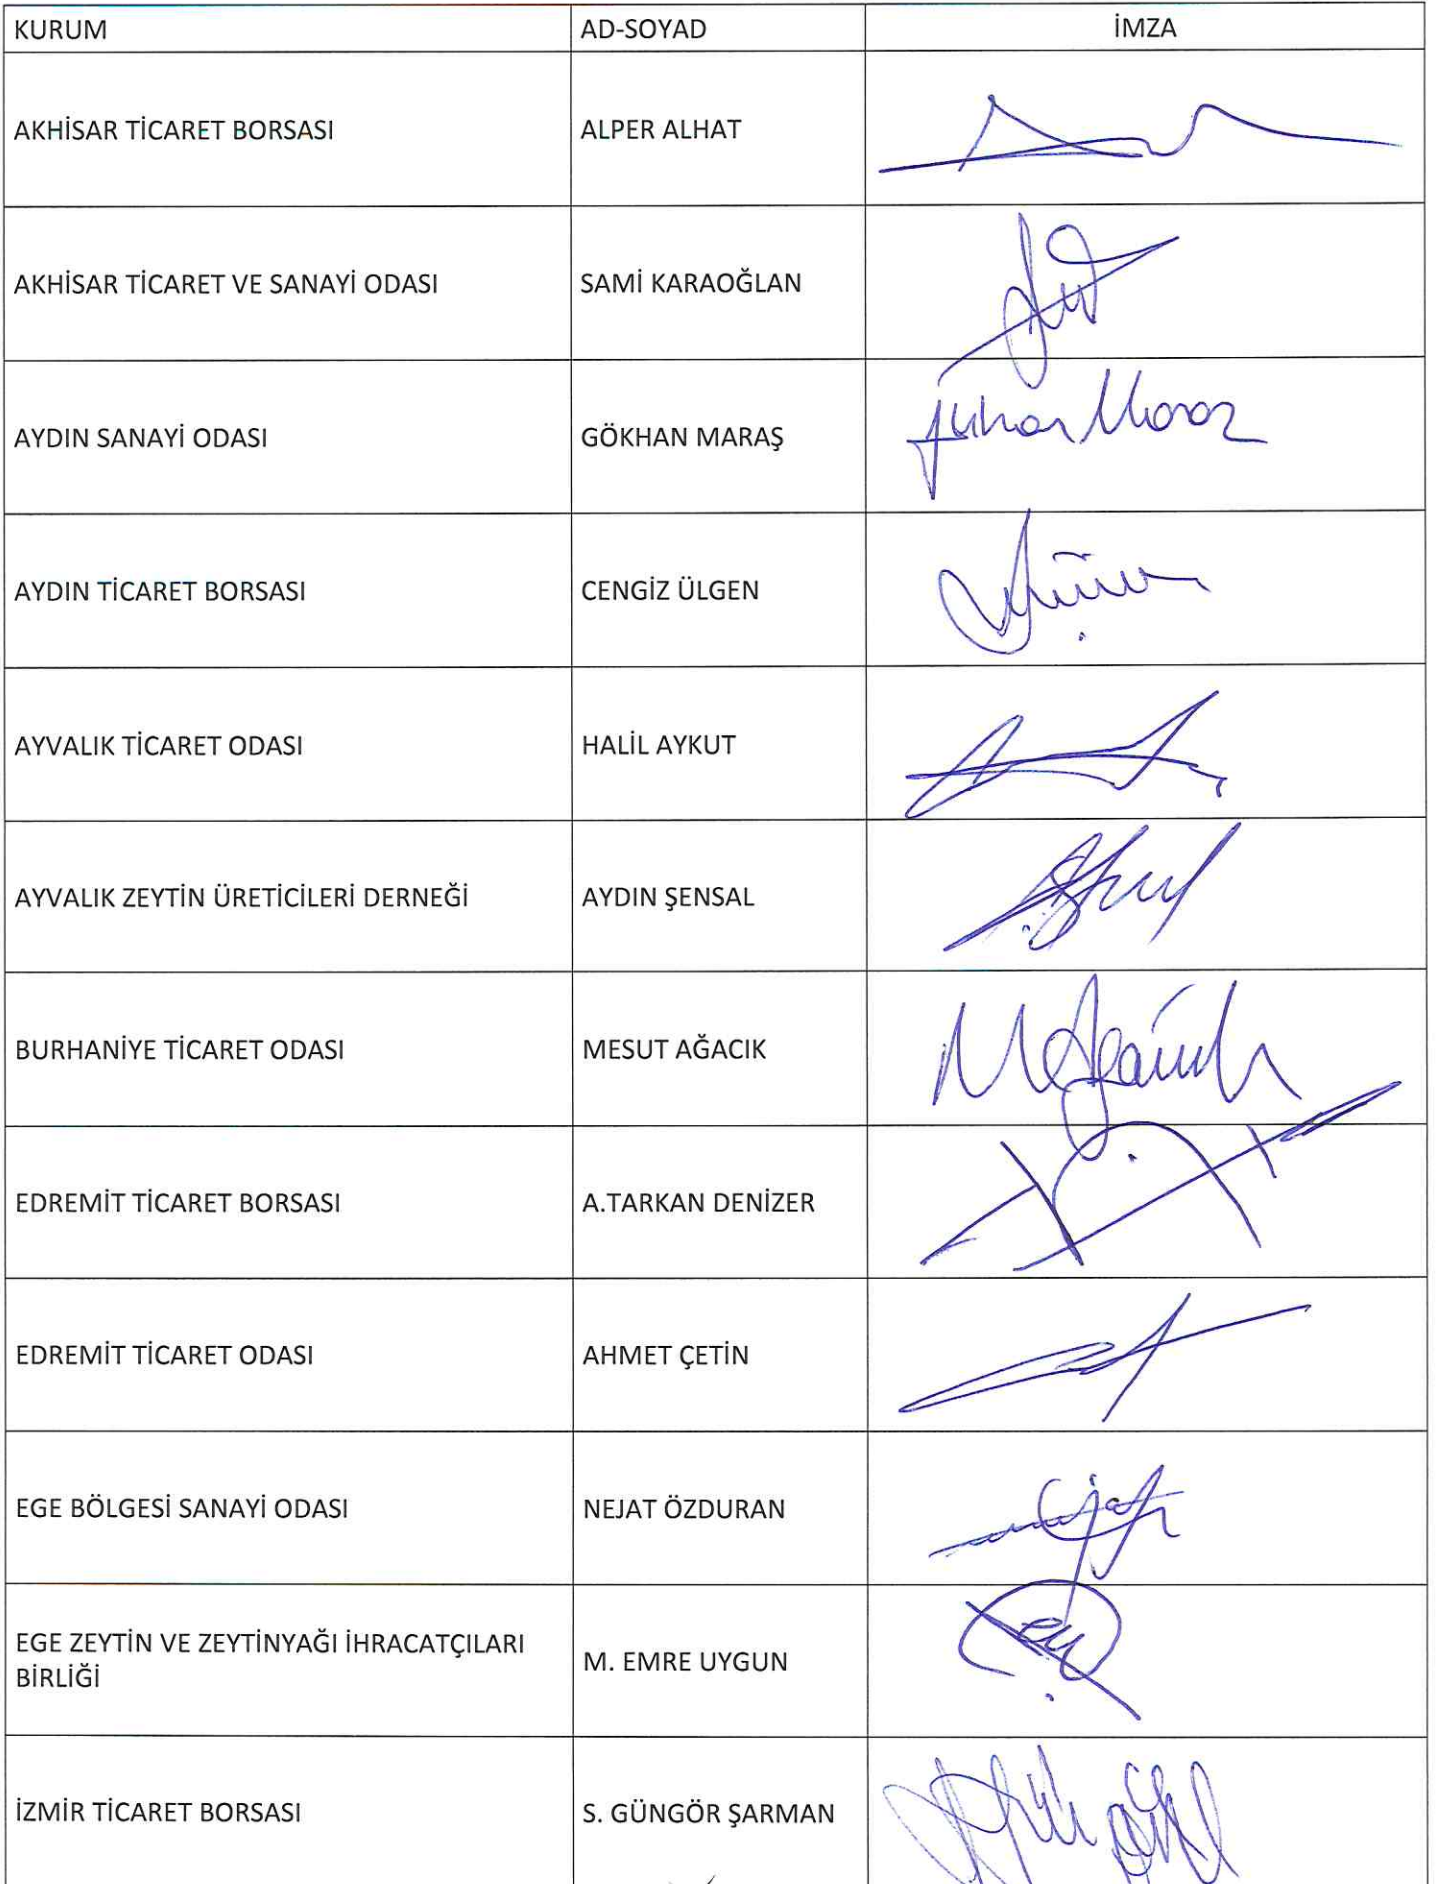 KURUM AD-SOYAD İMZA
AKHİSAR TİCARET BORSASI ALPER ALHAT
AKHİSAR TİCARET VE SANAYİ ODASI SAMİ KARAOĞLAN
AYDIN SANAYİ ODASI GÖKHAN MARAŞ
AYDIN TİCARET BORSASI CENGİZ ÜLGEN
AYVALIK TİCARET ODASI HALİL AYKUT
AYVALIK ZEYTİN ÜRETİCİLERİ DERNEĞİ AYDIN ŞENSAL
BURHANİYE TİCARET ODASI MESUT AĞACIK
EDREMİT TİCARET BORSASI A.TARKAN DENİZER
EDREMİT TİCARET ODASI AHMET ÇETİN
EGE BÖLGESİ SANAYİ ODASI NEJAT ÖZDURAN
EGE ZEYTİN VE ZEYTİNYAĞI İHRACATÇILARI
BİRLİĞİ M. EMRE UYGUN
İZMİR TİCARET BORSASI S. GÜNGÖR ŞARMAN